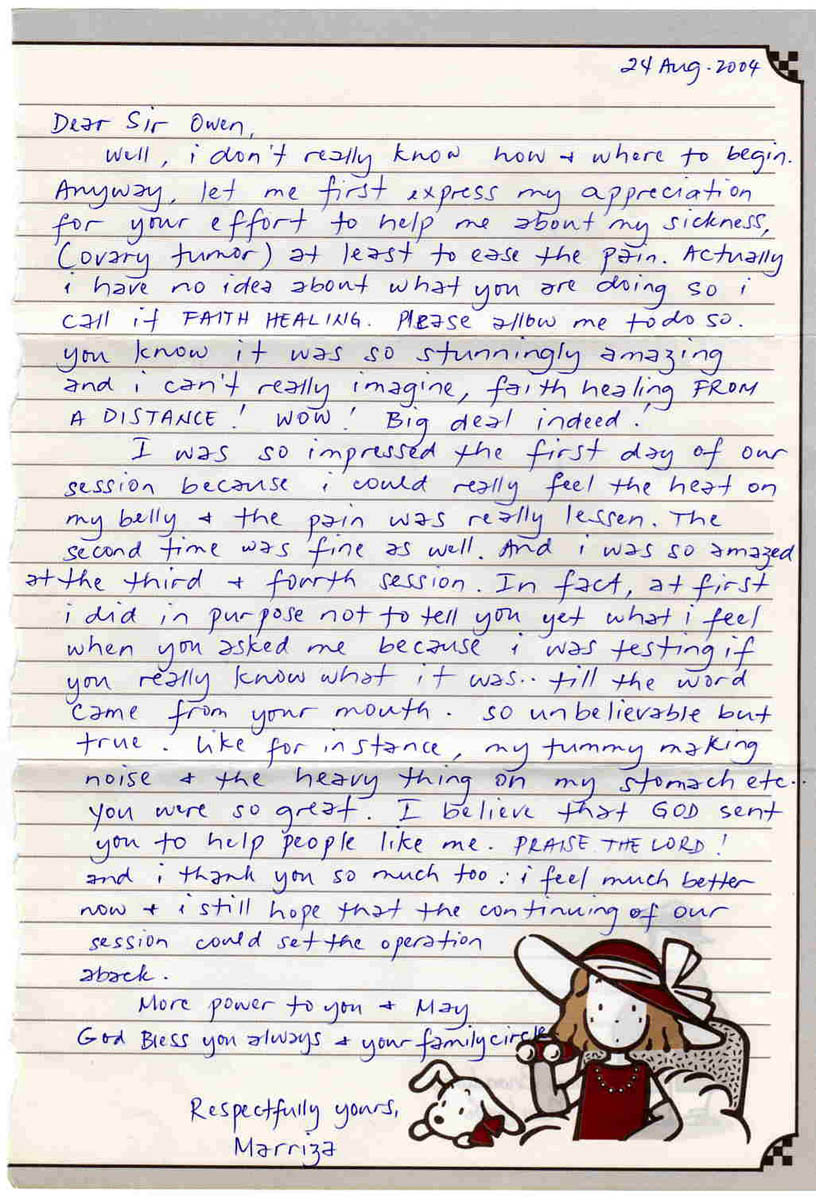 24 Aug. 2004
Dear Sir Owen,
Well, i don't really know how + where to begin.
Anyway, let me first express my appreciation
for your effort to help me about my sickness,
(ovary tumor) at least to ease the pain. Actually
i have no idea about what you are doing so i
call it FAITH HEALING. Please allow me to do so.
you know it was so stunningly amazing
and i can't really imagine, faith healing FROM
A DISTANCE! WOW! Big deal indeed!
I was so impressed the first day of our
session because i could really feel the heat on
my belly + the pain was really lessen. The
second time was fine as well. And i was so amazed
at the third + fourth session. In fact, at first
i did in purpose not to tell you yet what i feel
when you asked me because i was testing if
you really know what it was.. till the word
came from your mouth. so unbelievable but
true. like for instance, my tummy making
noise + the heavy thing on my stomach etc..
You were so great. I believe that GOD sent
you to help people like me. PRAISE THE LORD!
and i thank you so much too. i feel much better
now + i still hope that the continuing of our
session could set the operation
aback.
More power to you + May
God Bless you always + your family circle
Respectfully yours,
Marriza